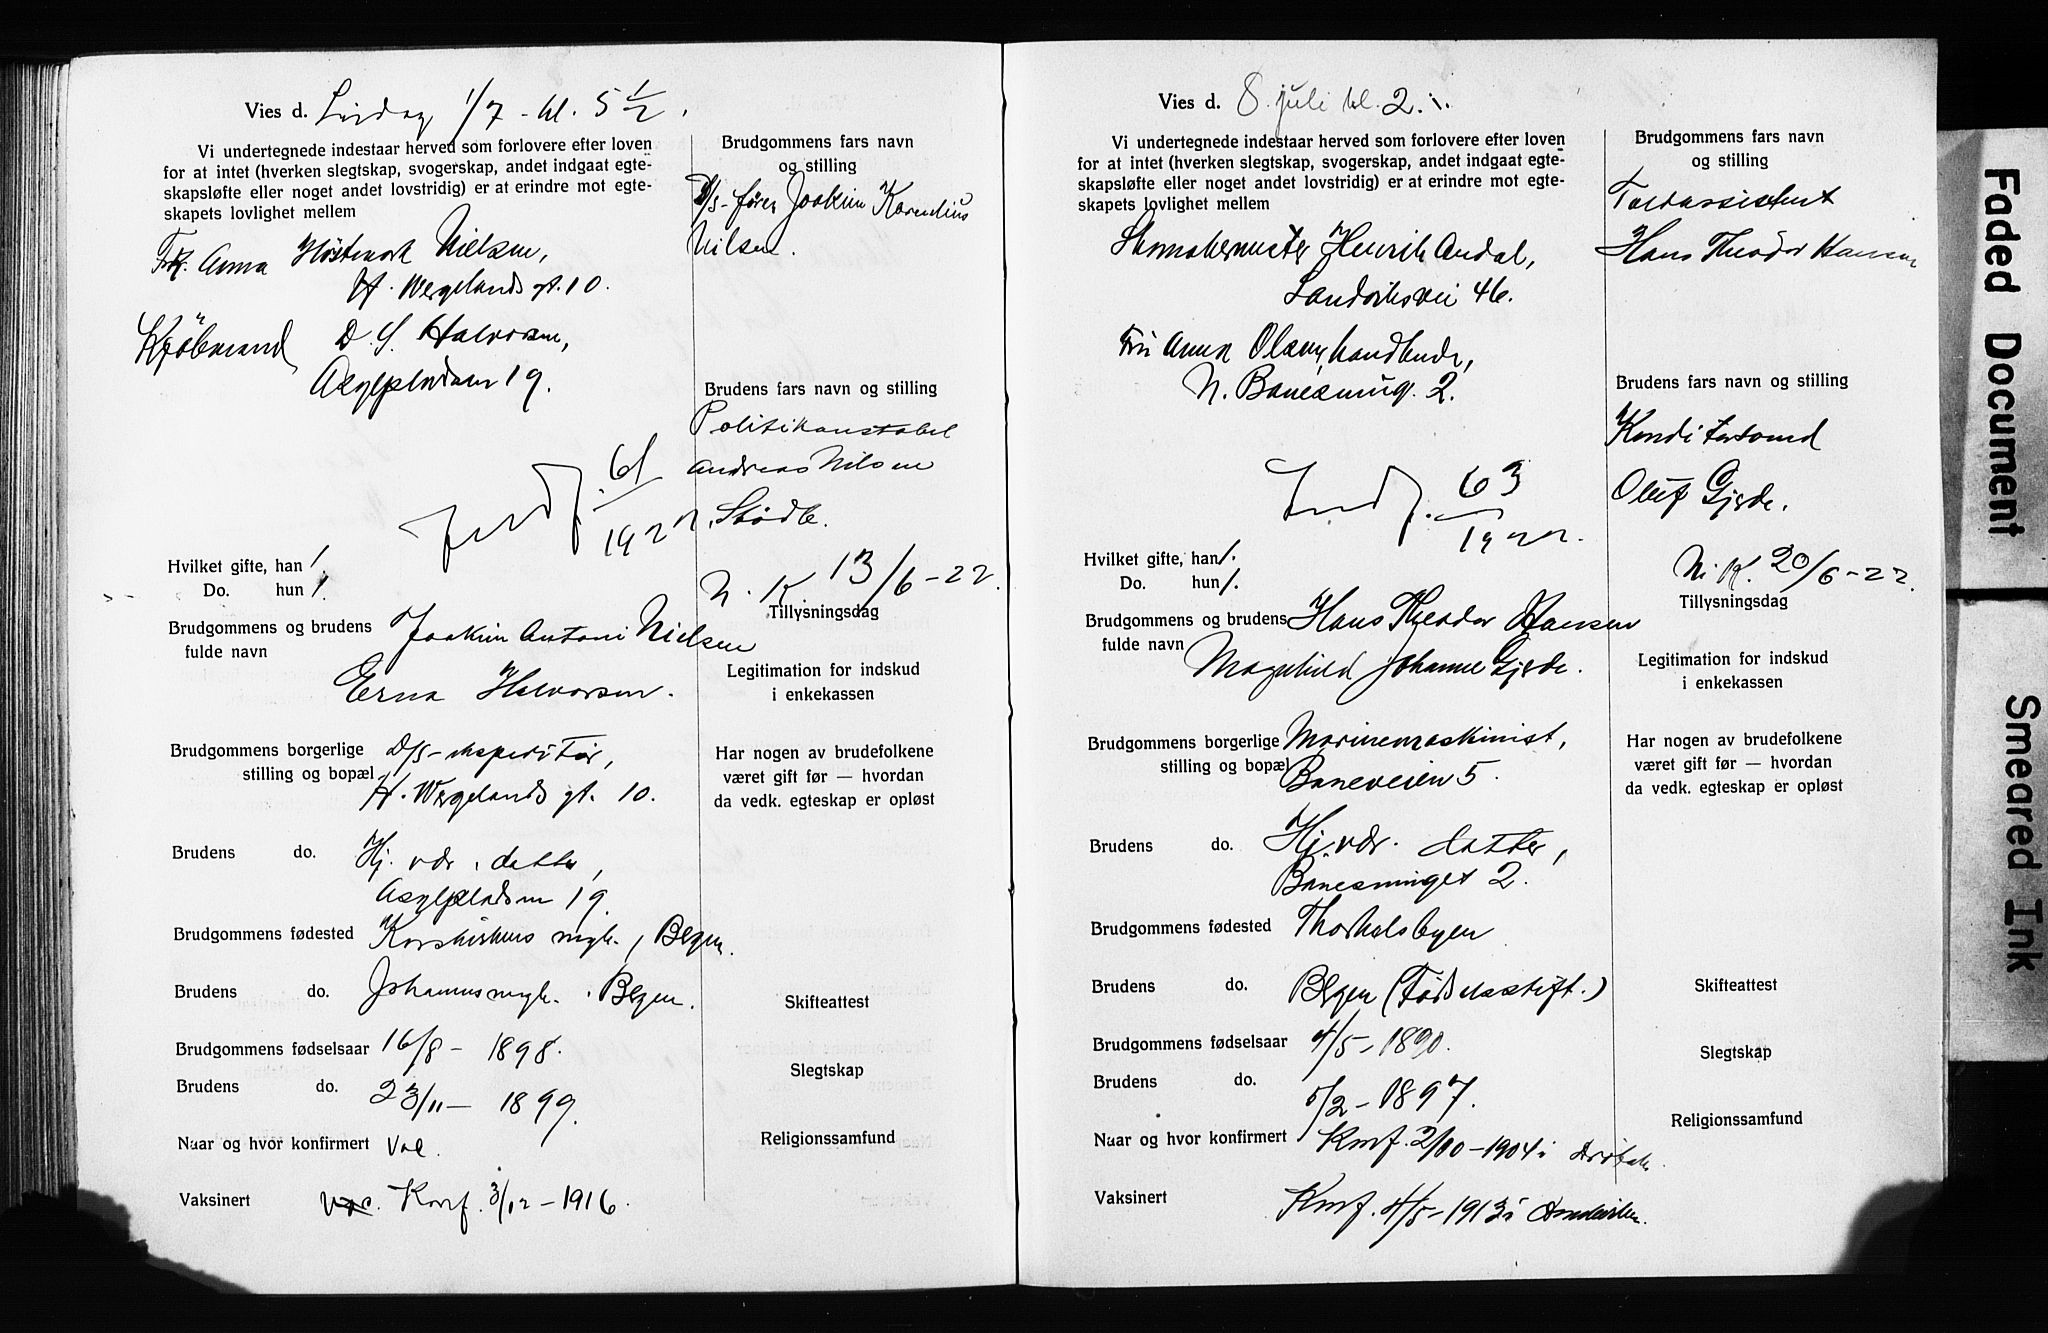 Vies d. Lørdag 1/7 - kl. 5 1/2.
Vi undertegnede indestaar herved som forlovere efter loven
for at intet (hverken slegtskap, svogerskap, andet indgaat egte-
skapsløfte eller noget andet lovstridig) er at erindre mot egte-
skapets lovlighet mellem
Frk. Anna Høstmark Nielsen,
H. Wergelands gt. 10.
Kjøbmand D. S. Halvorsen,
Asylpladsen 19.
61
1922
Brudgommens fars navn
og stilling
D/S-fører Joakim Kornelius
Nilsen.
Brudens fars navn og stilling
Politikonstabel
Andreas Nilsen
N. K. 13/6-22.
Tillysningsdag
Legitimation for indskud
i enkekassen
Har nogen av brudefolkene
været gift før — hvordan
da vedk. egteskap er opløst
Skifteattest
Slegtskap
Religionssamfund
Hvilket gifte, han 1.
Do. hun 1.
Brudgommens og brudens
fulde navn
Joakim Antoni Nielsen
Erna Halvorsen.
Brudgommens borgerlige
stilling og bopæl
D/S-ekspeditør,
H. Wergelands gt. 10.
Brudens do. Hj. vær. datter,
Asylpladsen 19.
Brudgommens fødested Korskirkens mgh., Bergen.
Brudens do. Johannesmgh. Bergen.
Brudgommens fødselsaar 16/8 - 1898.
Brudens do. 23/11 - 1899.
Naar og hvor konfirmert
Vaksinert Konf. 3/12 - 1916.
Vies d. 8. juli kl. 2.
Vi undertegnede indestaar herved som forlovere efter loven
for at intet (hverken slegtskap, svogerskap, andet indgaat egte-
skapsløfte eller noget andet lovstridig) er at erindre mot egte-
skapets lovlighet mellem
Skomakermester Henrik Andal,
Landåsvei 46.
Fru Anna Olsen, handlende,
N. Banesmug. 2.
63
1922.
Brudgommens fars navn
og stilling
Toldassistent
Hans Theodor Hansen
Brudens fars navn og stilling
Konditorsvend
Oluf Gjerde.
N. K. 20/6-22.
Tillysningsdag
Legitimation for indskud
i enkekassen
Har nogen av brudefolkene
været gift før — hvordan
da vedk. egteskap er opløst
Skifteattest
Slegtskap
Religionssamfund
Hvilket gifte, han 1.
Do. hun 1.
Brudgommens og brudens
fulde navn
Hans Theodor Hansen
Magnhild Johanne Gjerde.
Brudgommens borgerlige
stilling og bopæl
Marinemaskinist,
Baneveien 5.
Brudens do. Hj. vær. datter,
Banesmuget 2.
Brudgommens fødested
Brudens do. Bergen (Fødselsstift.)
Brudgommens fødselsaar 4/5 - 1890.
Brudens do. 5/2 - 1897.
Naar og hvor konfirmert Konf. 2/10 - 1904 i
Vaksinert Konf. 4/5 - 1913 i
Faded Document
Smeared Ink